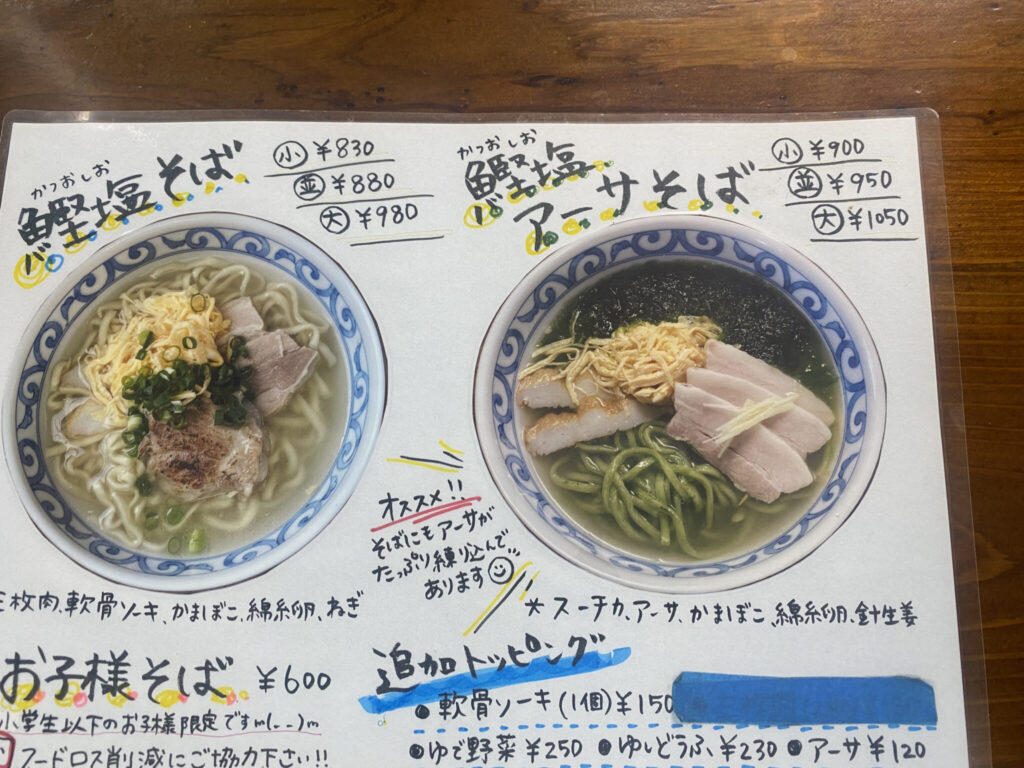 かつおしお
鰹塩そば
小 ¥830
並 ¥880
大 ¥980
かつおしお
鰹塩
アーサそば
小 ¥900
並 ¥950
大 ¥1050
オススメ!!
そばにもアーサが
たっぷり練り込んで
あります
枚肉、軟骨ソーキ、かまぼこ、綿糸卵、ねぎ
* スーチカ、アーサ、かまぼこ、綿糸卵、針生姜
お子様そば ¥600
小学生以下のお子様限定ですm(--)m
フードロス削減にご協力下さい!!
追加トッピング
● 軟骨ソーキ(1個)¥150
● ゆで野菜 ¥250 ● ゆしどうふ ¥230 ● アーサ ¥120